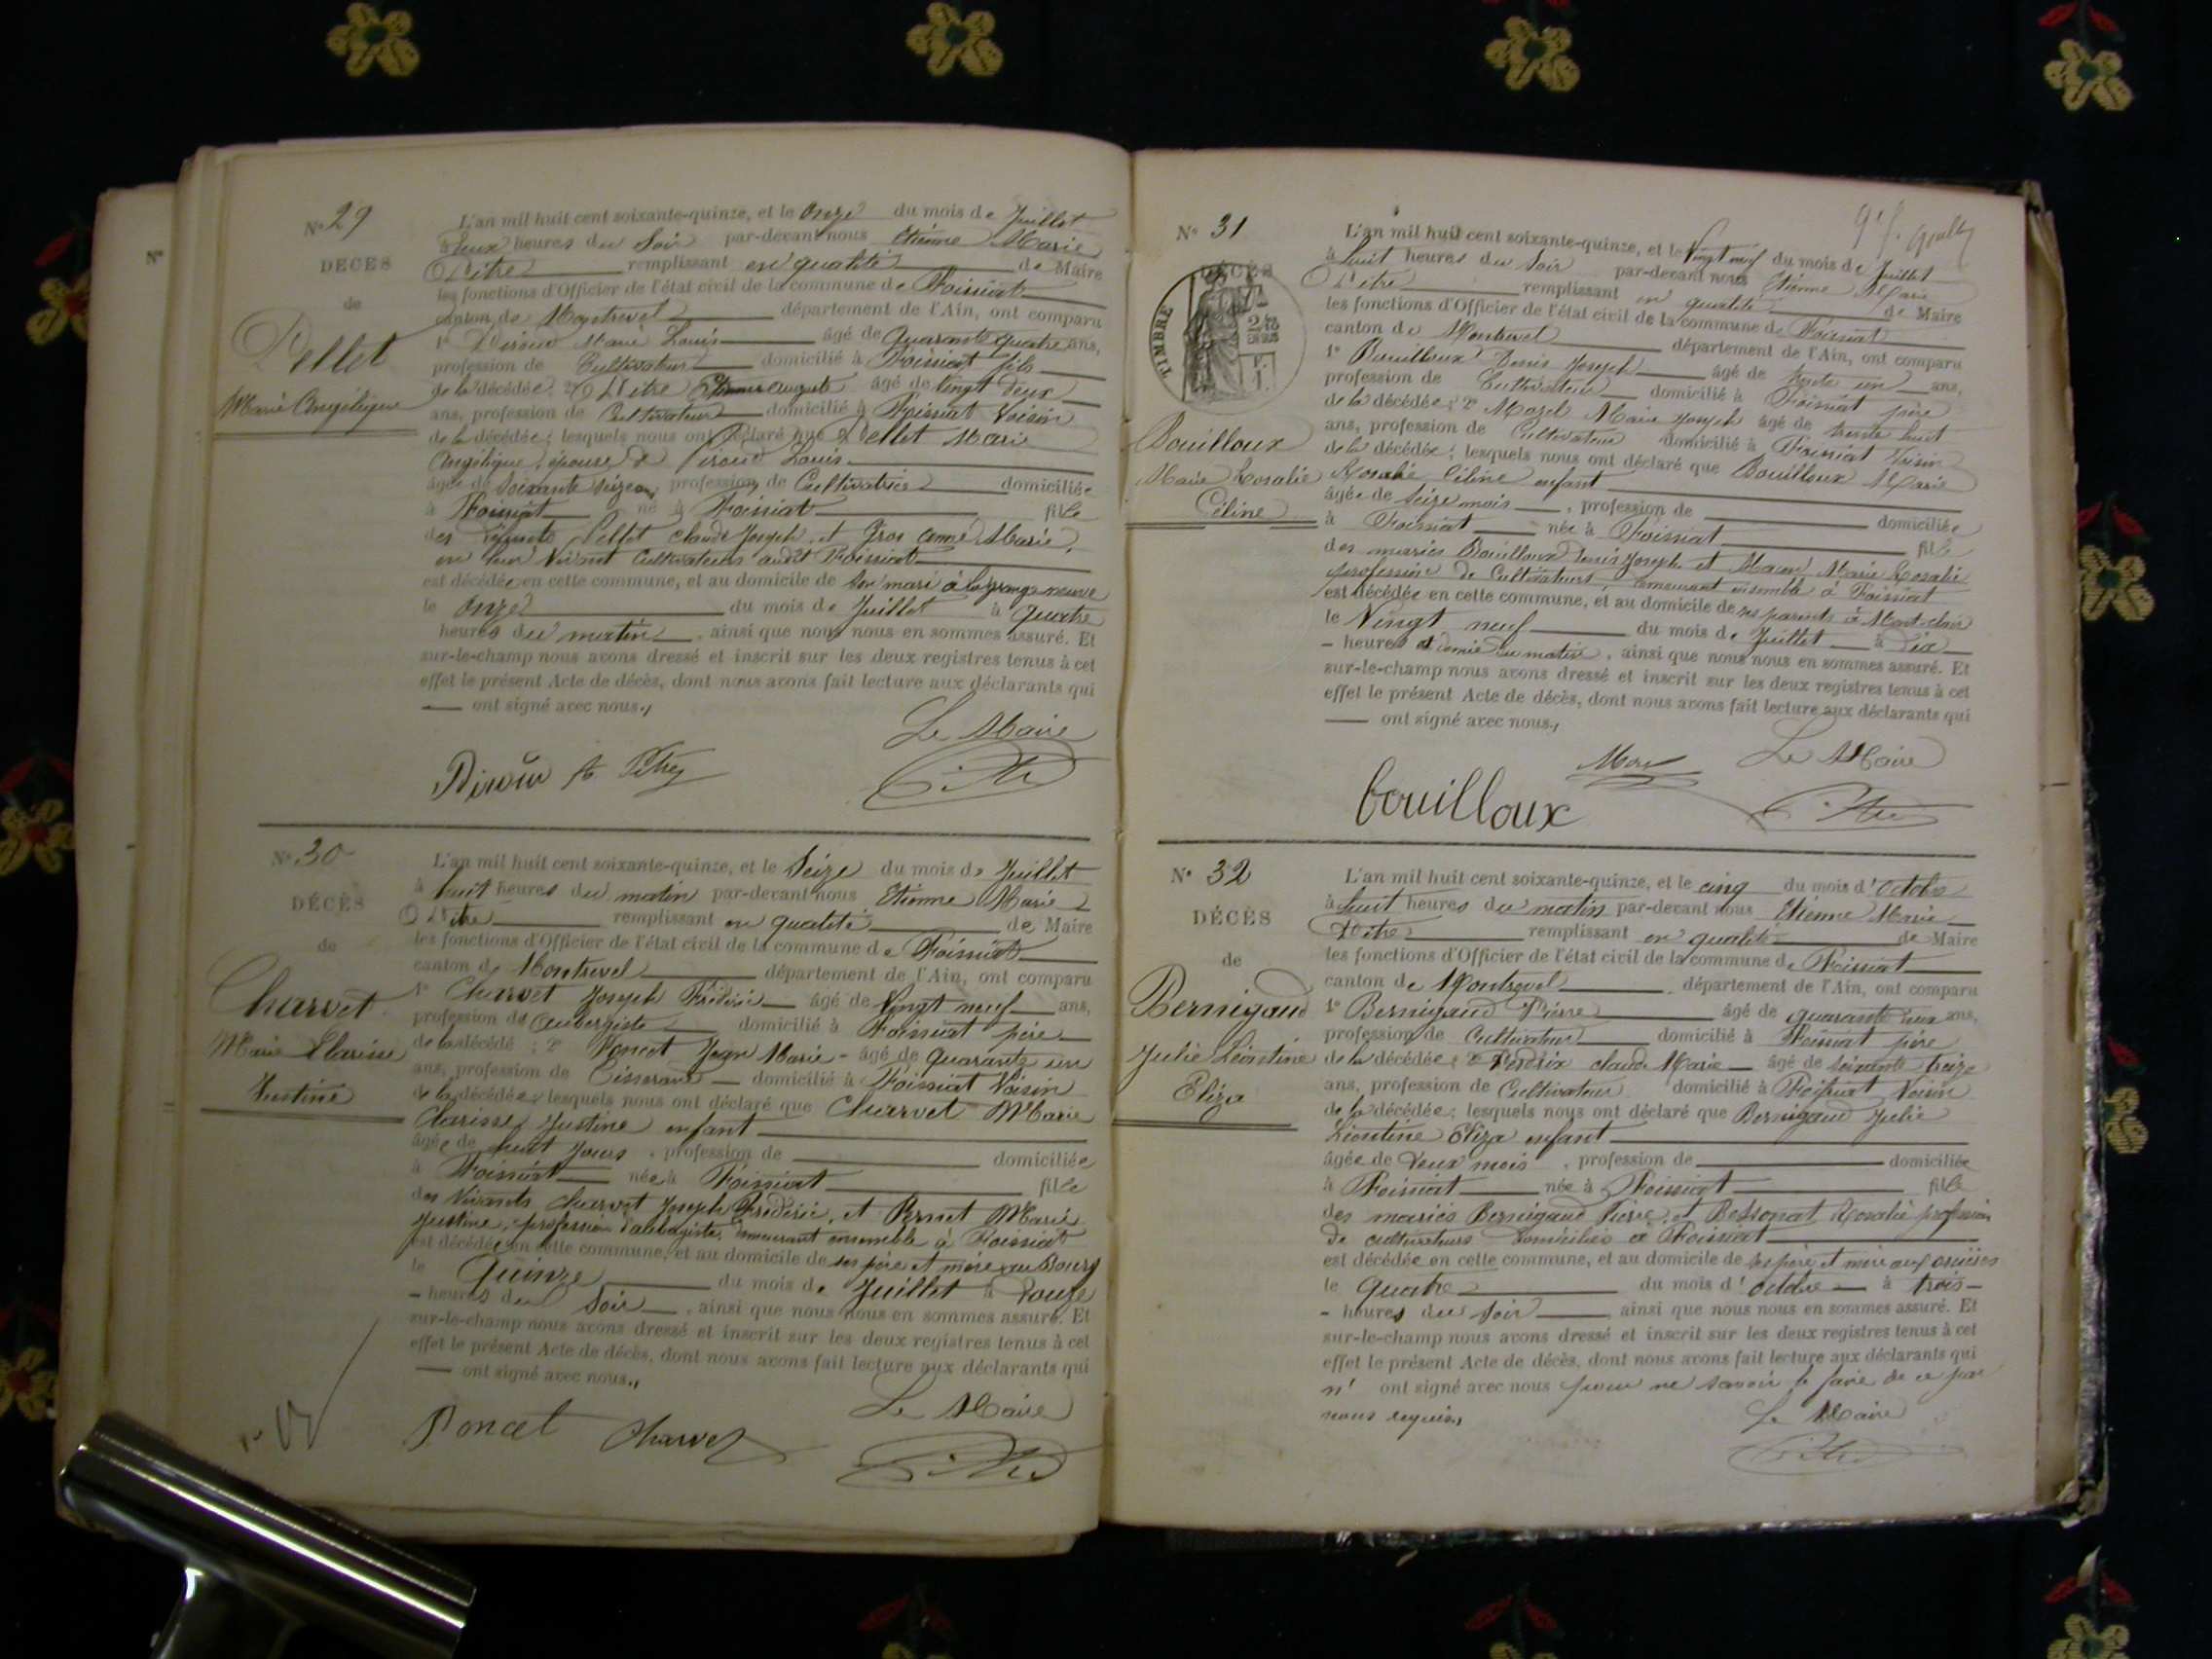 N° 29
DÉCÈS
de
Pellet
Marie Angélique
L'an mil huit cent soixante-quinze, et le onze du mois de Juillet
à deux heures du Soir par-devant nous Etienne Marie
Pitre remplissant en qualité de Maire
les fonctions d'Officier de l'état civil de la commune de Foissiat
canton de Montrevel département de l'Ain, ont comparu
1° Piroud Marie Louis âgé de quarante quatre ans,
profession de Cultivateur domicilié à Foissiat fils
de la décédée; 2° Pitre Auguste âgé de vingt deux
ans, profession de Cultivateur domicilié à Foissiat Voisin
de la décédée; lesquels nous ont déclaré que Pellet Marie
Angélique, épouse de Piroud Louis
âgée de Soixante seize ans, profession de Cultivatrice domiciliée
à Foissiat née à Foissiat fille
des défunts Pellet Claude Joseph et Gros Anne Marie,
en leur Vivant Cultivateurs audit Foissiat
est décédée en cette commune, et au domicile de son mari à la grange neuve
le onze du mois de Juillet à quatre
heures du matin, ainsi que nous nous en sommes assuré. Et
sur-le-champ nous avons dressé et inscrit sur les deux registres tenus à cet
effet le présent Acte de décès, dont nous avons fait lecture aux déclarants qui
ont signé avec nous.
Le Maire
Piroud
N° 30
DÉCÈS
de
Charvet
Marie Clarisse
Justine
L'an mil huit cent soixante-quinze, et le Seize du mois de Juillet
à huit heures du matin par-devant nous Etienne Marie
Pitre remplissant en qualité de Maire
les fonctions d'Officier de l'état civil de la commune de Foissiat
canton de Montrevel département de l'Ain, ont comparu
1° Charvet Joseph Frédéric âgé de Vingt neuf ans,
profession de aubergiste domicilié à Foissiat père
de la décédé; 2° Poncet Jean Marie âgé de quarante un
ans, profession de Tisserand domicilié à Foissiat Voisin
de la décédée; lesquels nous ont déclaré que Charvet Marie
Clarisse Justine enfant
âgée de huit jours, profession de domiciliée
à Foissiat née à Foissiat fille
des Vivants Charvet Joseph Frédéric, et Pernet Marie
Justine, profession d'aubergiste, demeurant ensemble à Foissiat
est décédée en cette commune, et au domicile de ses père et mère au Bourg
le Quinze du mois de Juillet à Douze
heures du Soir, ainsi que nous nous en sommes assuré. Et
sur-le-champ nous avons dressé et inscrit sur les deux registres tenus à cet
effet le présent Acte de décès, dont nous avons fait lecture aux déclarants qui
ont signé avec nous.
Le Maire
Poncet Charvet
N° 31
DÉCÈS
TIMBRE
Bouilloux
Marie Rosalie
Céline
L'an mil huit cent soixante-quinze, et le Vingt neuf du mois de Juillet
à huit heures du Soir par-devant nous Etienne Marie
Pitre remplissant en qualité de Maire
les fonctions d'Officier de l'état civil de la commune de Foissiat
canton de Montrevel département de l'Ain, ont comparu
1° Bouilloux Denis Joseph âgé de trente un ans,
profession de Cultivateur domicilié à Foissiat père
de la décédée; 2° Morel Marie Joseph âgé de trente huit
ans, profession de Cultivateur domicilié à Foissiat Voisin
de la décédée; lesquels nous ont déclaré que Bouilloux Marie
Rosalie Céline enfant
âgée de Seize mois, profession de domiciliée
à Foissiat née à Foissiat fille
des mariés Bouilloux Denis Joseph et Marie Rosalie
profession de Cultivateurs demeurant ensemble à Foissiat
est décédée en cette commune, et au domicile de ses parents à
le Vingt neuf du mois de Juillet à Dix
heures et demie du matin, ainsi que nous nous en sommes assuré. Et
sur-le-champ nous avons dressé et inscrit sur les deux registres tenus à cet
effet le présent Acte de décès, dont nous avons fait lecture aux déclarants qui
ont signé avec nous.
Le Maire
Morel
bouilloux
N° 32
DÉCÈS
de
Bernigaud
Julie Léontine
Eliza
L'an mil huit cent soixante-quinze, et le cinq du mois d'Octobre
à huit heures du matin par-devant nous Etienne Marie
Pitre remplissant en qualité de Maire
les fonctions d'Officier de l'état civil de la commune de Foissiat
canton de Montrevel département de l'Ain, ont comparu
1° Bernigaud Pierre âgé de quarante ans,
profession de Cultivateur domicilié à Foissiat père
de la décédée; 2° Perdrix Claude Marie âgé de soixante treize
ans, profession de Cultivateur domicilié à Foissiat Voisin
de la décédée; lesquels nous ont déclaré que Bernigaud Julie
Léontine Eliza enfant
âgée de Deux mois, profession de domiciliée
à Foissiat née à Foissiat fille
des mariés Bernigaud Pierre, et Rosalie profession
de cultivateurs domiciliés à Foissiat
est décédée en cette commune, et au domicile de ses père et mère aux
le Quatre du mois d'octobre à trois
heures du Soir ainsi que nous nous en sommes assuré. Et
sur-le-champ nous avons dressé et inscrit sur les deux registres tenus à cet
effet le présent Acte de décès, dont nous avons fait lecture aux déclarants qui
n' ont signé avec nous pour ne savoir le faire de ce par
nous requis.
Le Maire